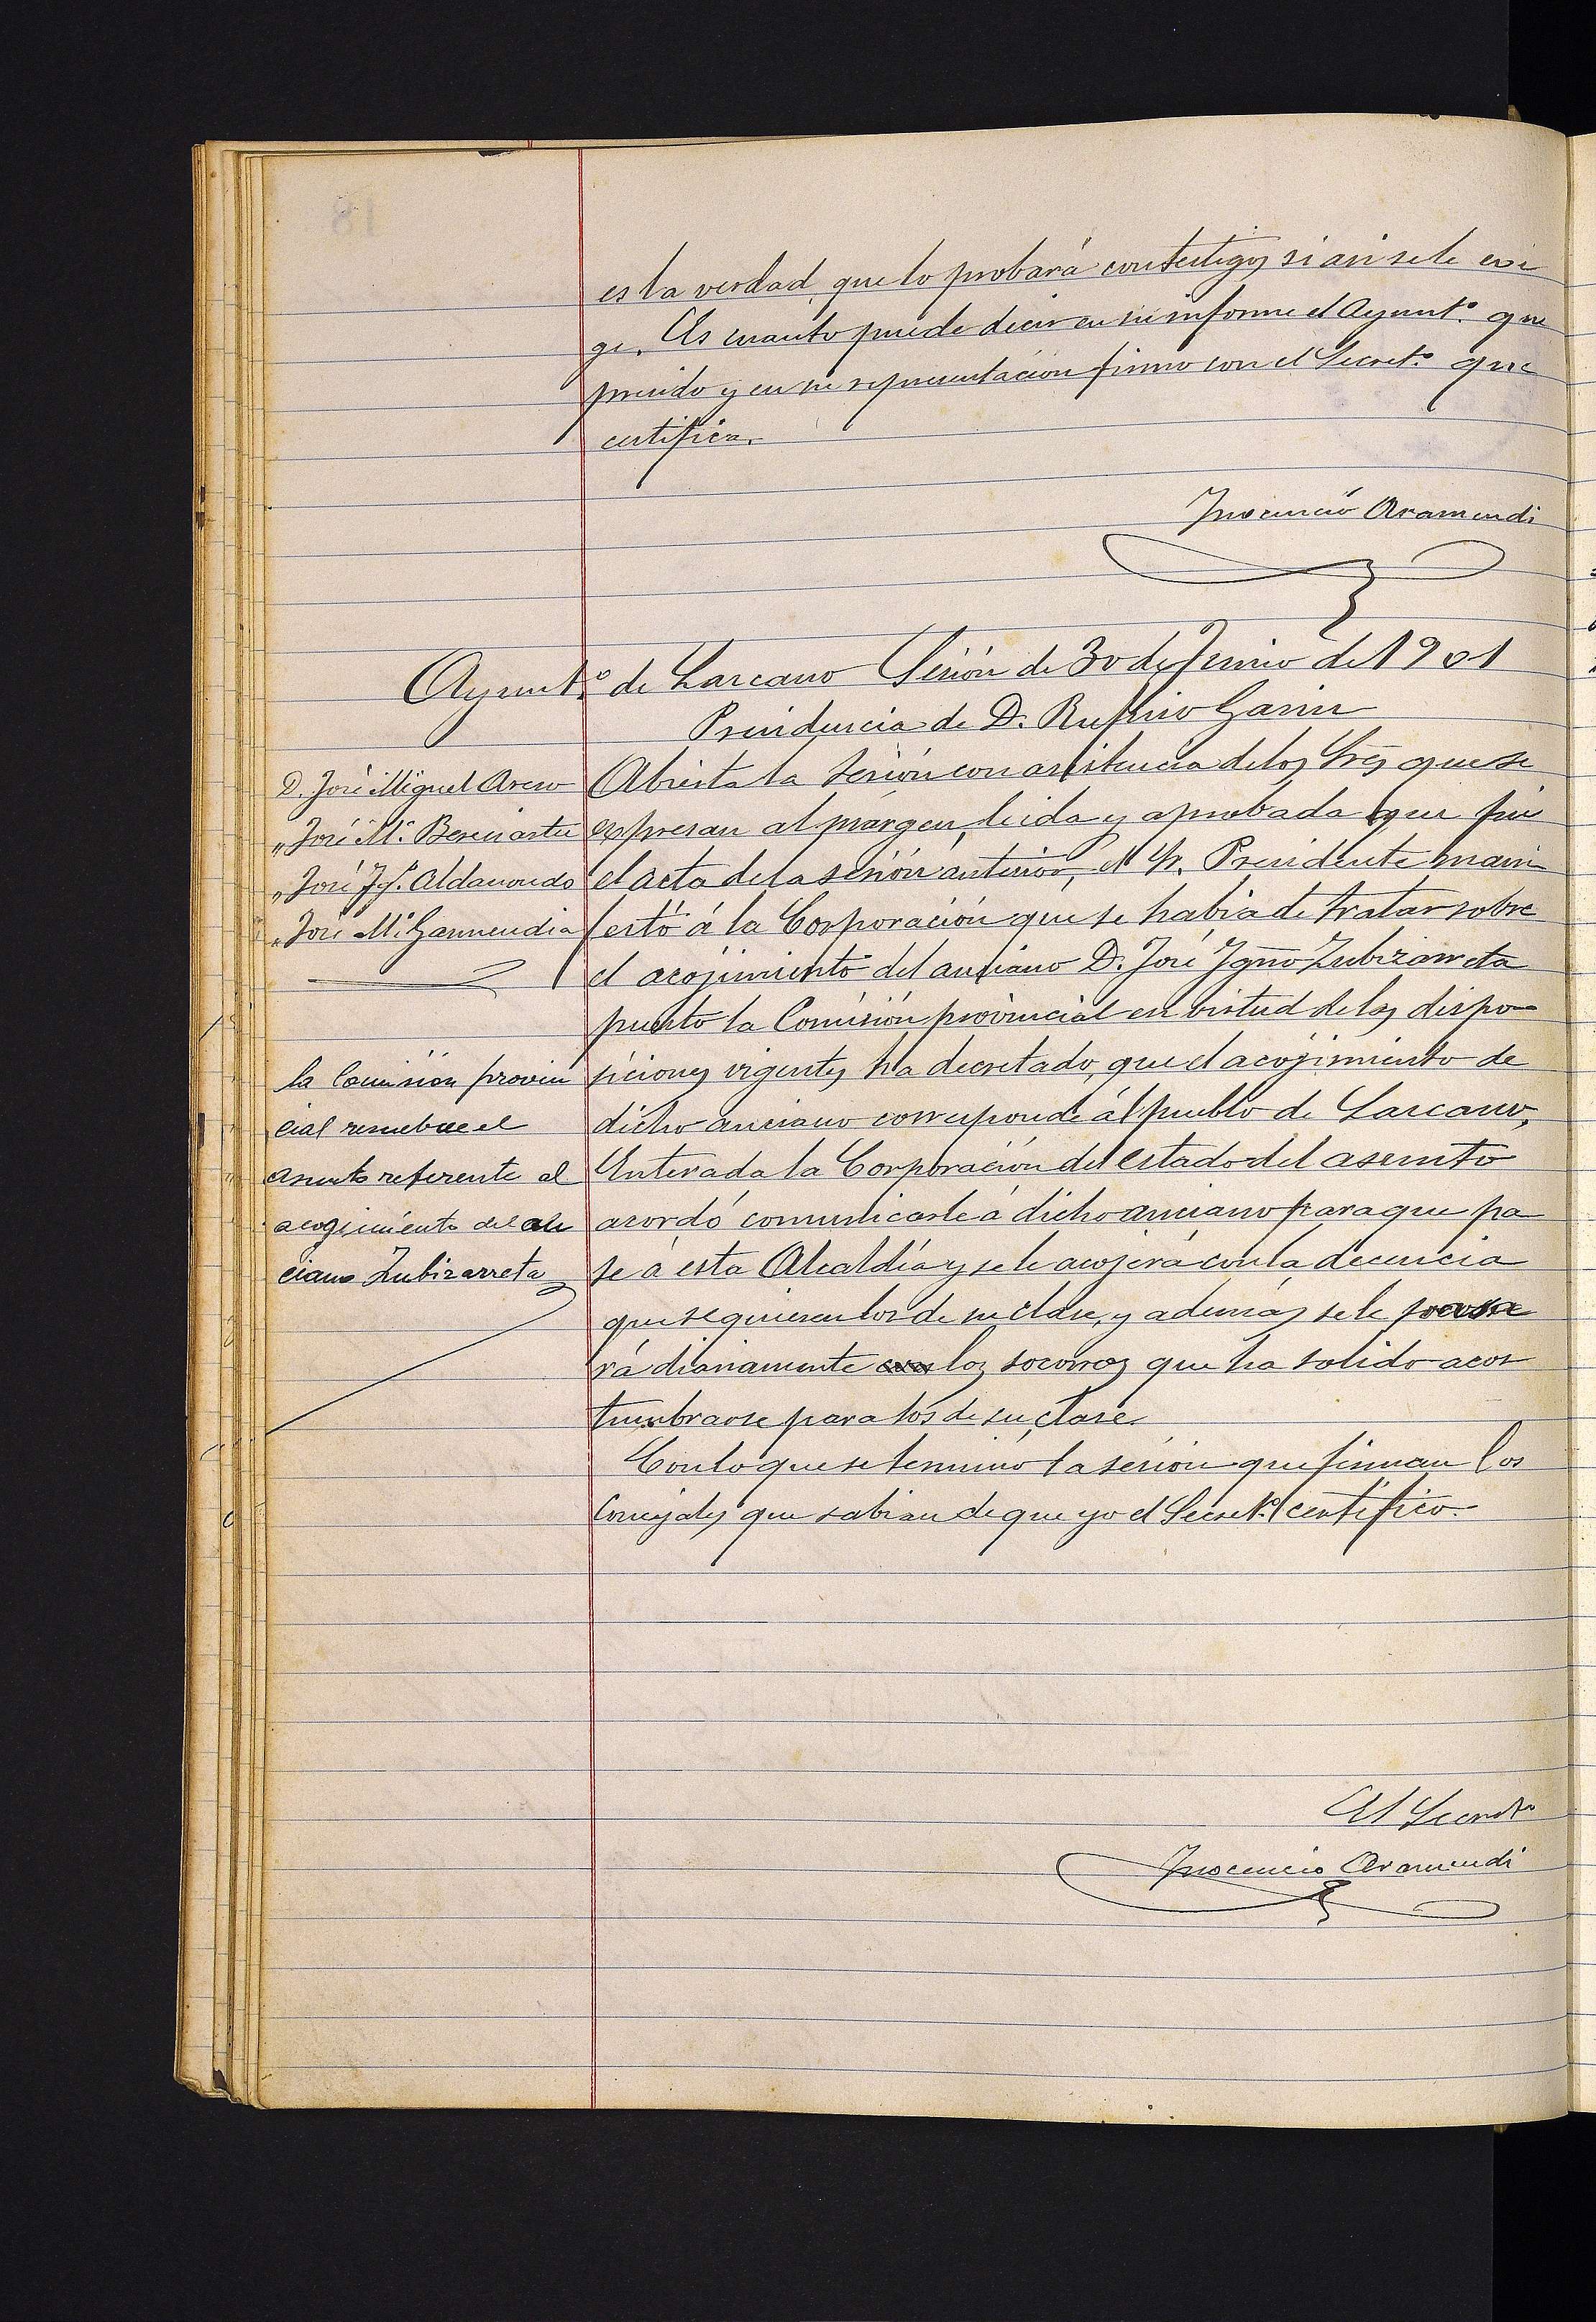 es la verdad, que lo probará con testigos si asi se le exi
ge. Es cuanto puede decir en su informe el Ayunt.º que
presido y en su representación firmo con el Secret.º que
certifica.
Inocencio Aramendi
Ayunt.º de Lazcano Sesión de 30 de Junio de 1901
Presidencia de D. Rufino Garin
D. José Miguel Areso
„ José M.ª Bereciartu
„ José Ig.º Aldanondo
„ José M.ª Garmendia
Abierta la sesión con asistencia de los Sres que se
expresan al márgen, leida y aprobada que fue
el acta de la sesión anterior, el Sr. Presidente mani
festó á la Corporación que se había de tratar sobre
el acojimiento del anciano D. José Ignº Zubizarreta
puesto la Comisión provincial en virtud de las dispo-
siciones vigentes ha decretado, que el acojimiento de
dicho anciano corresponde al pueblo de Lazcano,
Enterada la Corporación del estado del asunto
acordó comunicarle á dicho anciano para que pa
se á esta Alcaldía y se le acojerá con la decencia
que requieren los de su clase, y además se le
rá diariamente los socorros que ha solido acos
tumbrarse para los de su clase.
la Comisión provin
cial resuelve el
asunto referente al
acogimiento del an
ciano Zubizarreta
Con lo que se terminó la sesión que firman los
Concejales que sabian de que yo el Secret.º certifico.
El Secret.º
Inocencio Aramendi